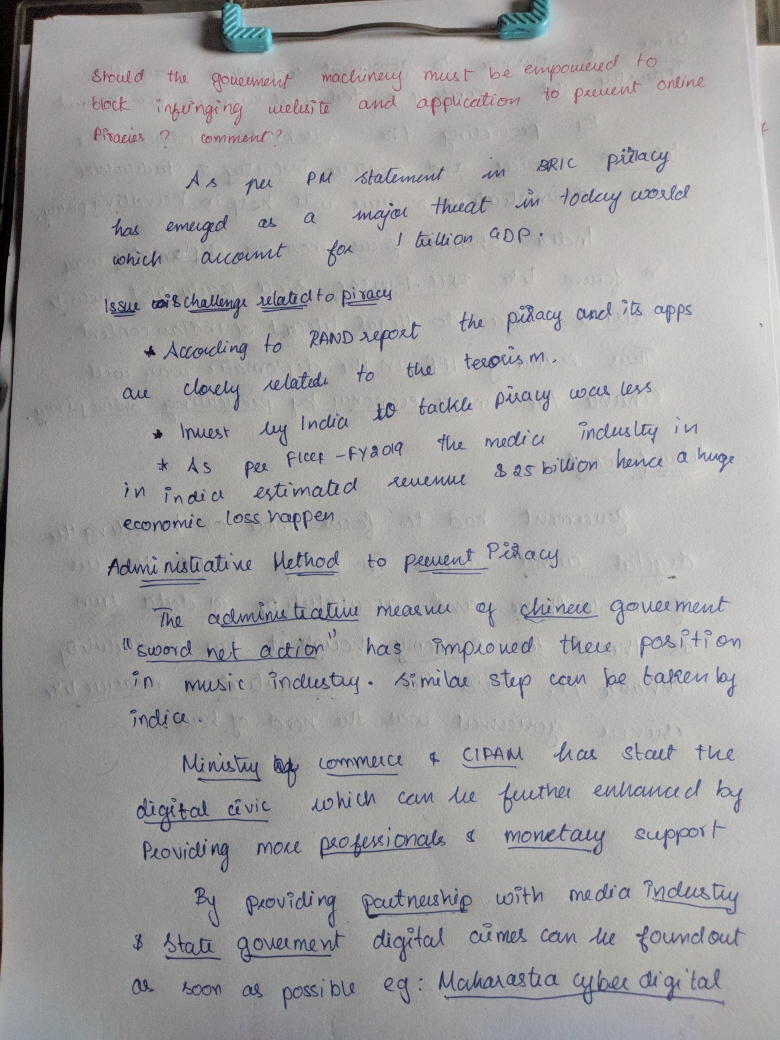 Should the goverment machinery must be empowered to
block infringing website and application to prevent online
Piracies ? comment?
As per PM statement in BRIC piracy
has emerged as a major threat in today world
which account for 1 trillion GDP.
Issue & challenge related to piracy
* According to RAND report the piracy and its apps
are closely related to the terroism.
* Invest by India to tackle piracy was less
* As per FICCI - FY2019 the media industry in
in india estimated revenue $ 25 billion hence a huge
economic loss happen
Administrative Method to prevent Piracy
The administrative measure of chinese goverment
"sword net action" has improved there position
in music industry. similar step can be taken by
india.
Ministry of commerce & CIPAM has start the
digital civic which can be further enhanced by
Providing more professionals & monetary support
By providing partnership with media industry
& state goverment digital crimes can be found out
as soon as possible eg: Maharastra cyber digital